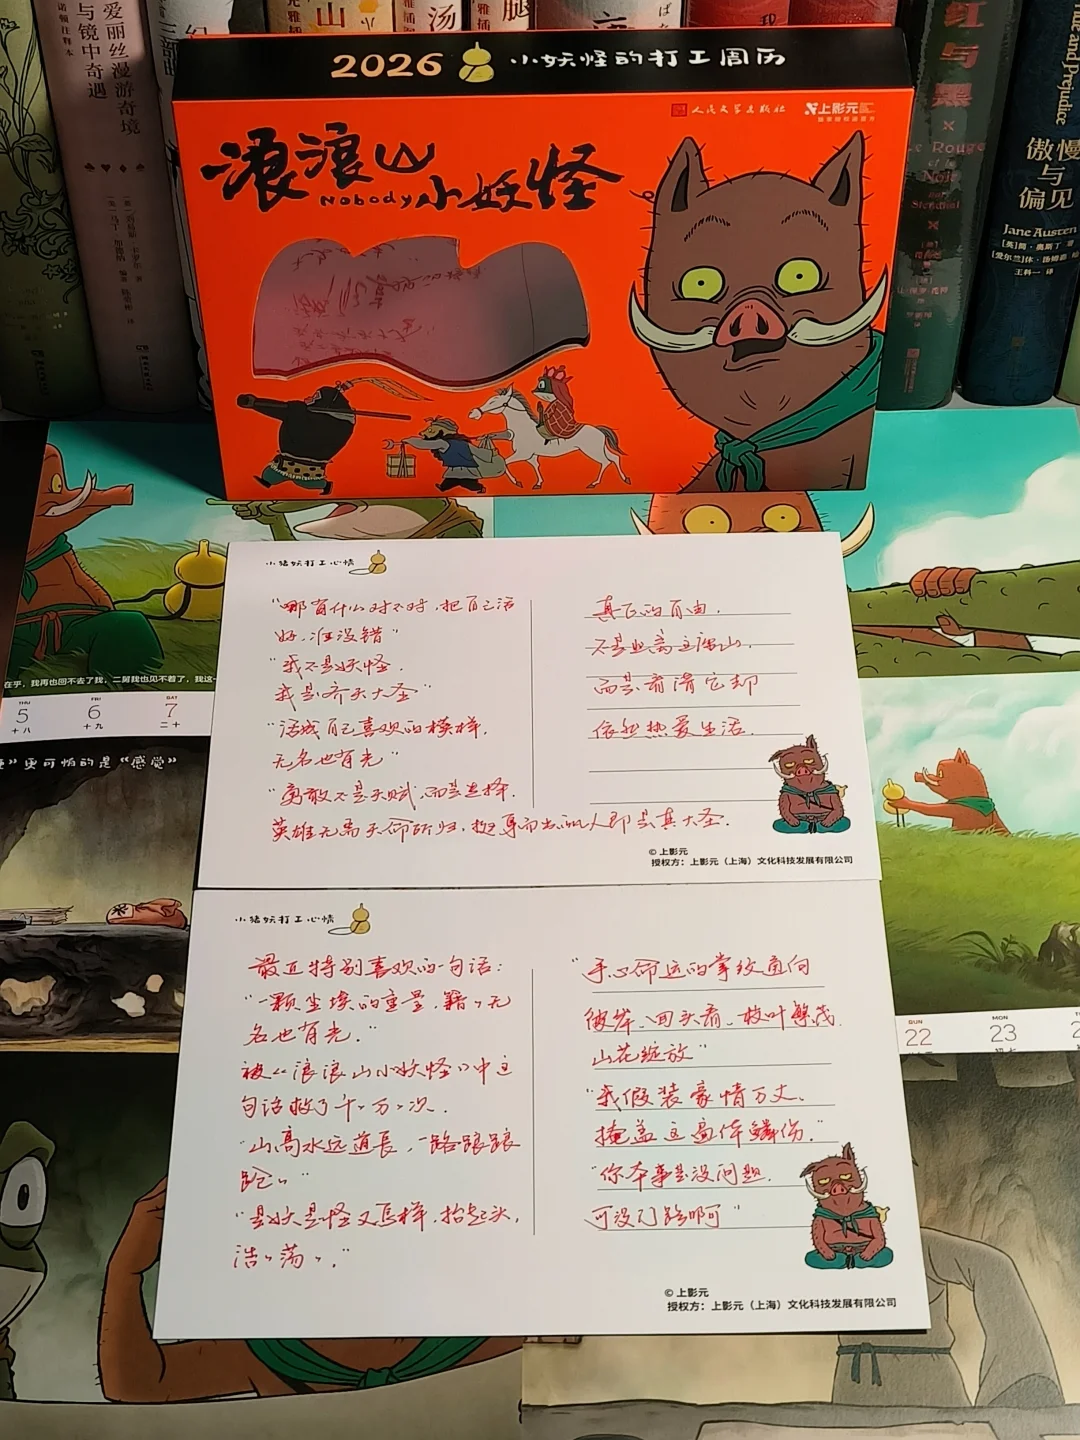 爱丽丝漫游奇境
与镜中奇遇
诺顿注释本
山
汤
腿
红与黑
Le Rouge
et le
Noir
Stendhal
Pride and Prejudice
傲慢
与
偏见
Jane Austen
[英]简·奥斯丁 著
王科一 译
2026 小妖怪的打工周历
人民文学出版社
上影元
浪浪山
Nobody 小妖怪
在乎，我再也回不去了我，二舅我也见不着了，我这一
THU
FRI
SAT
5
6
7
十八
十九
二十
更可怕的是“感觉”
小猪妖打工心情
“哪有什么对不对，把自己活
好，准没错”
“我不是妖怪，
我是齐天大圣”
“活成自己喜欢的模样，
无名也有光”
“勇敢不是天赋，而是选择，
英雄无需天命所归，挺身而出的人即是真大圣.
真正的自由，
不是逃离这座山，
而是看清它却
依然热爱生活.
© 上影元
授权方：上影元（上海）文化科技发展有限公司
小猪妖打工心情
最近特别喜欢的一句话：
“一颗尘埃的重量，籍籍无
名也有光.”
被《浪浪山小妖怪》中这
句话救了千千万万次.
“山高水远道長，一路踉踉
跄跄”
“是妖是怪又怎样，抬起头，
浩浩荡荡.”
“手心命运的掌纹通向
彼岸，回头看，枝叶繁茂
山花绽放”
“我假装豪情万丈，
掩盖这遍体鳞伤.”
“你本事是没问题，
可没门路啊”
© 上影元
授权方：上影元（上海）文化科技发展有限公司
SUN
MON
22
23